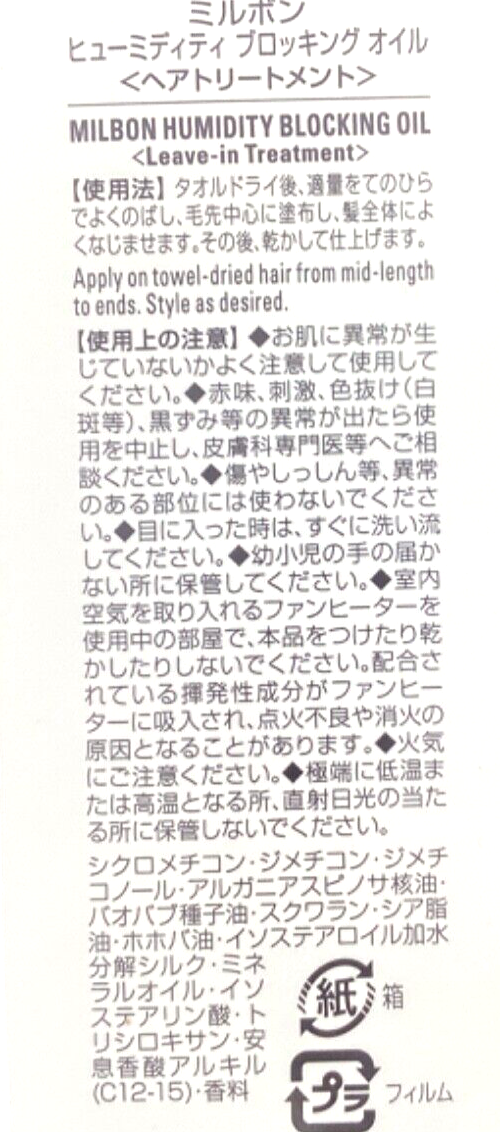 ミルボン
ヒューミディティ ブロッキング オイル
<ヘアトリートメント>
MILBON HUMIDITY BLOCKING OIL
<Leave-in Treatment>
【使用法】 タオルドライ後、適量をてのひら
でよくのばし、毛先中心に塗布し、髪全体によ
くなじませます。その後、乾かして仕上げます。
Apply on towel-dried hair from mid-length
to ends. Style as desired.
【使用上の注意】◆お肌に異常が生
じていないかよく注意して使用して
ください。◆赤味、刺激、色抜け(白
斑等)、黒ずみ等の異常が出たら使
用を中止し、皮膚科専門医等へご相
談ください。◆傷やしっしん等、異常
のある部位には使わないでくださ
い。◆目に入った時は、すぐに洗い流
してください。◆幼小児の手の届か
ない所に保管してください。◆室内
空気を取り入れるファンヒーターを
使用中の部屋で、本品をつけたり乾
かしたりしないでください。配合さ
れている揮発性成分がファンヒー
ターに吸入され、点火不良や消火の
原因となることがあります。◆火気
にご注意ください。◆極端に低温ま
たは高温となる所、直射日光の当た
る所に保管しないでください。
シクロメチコン・ジメチコン・ジメチ
コノール・アルガニアスピノサ核油・
バオバブ種子油・スクワラン・シア脂
油・ホホバ油・イソステアロイル加水
分解シルク・ミネ
ラルオイル・イソ
ステアリン酸・ト
リシロキサン・安
息香酸アルキル
(C12-15)・香料
紙 箱
プラ フィルム